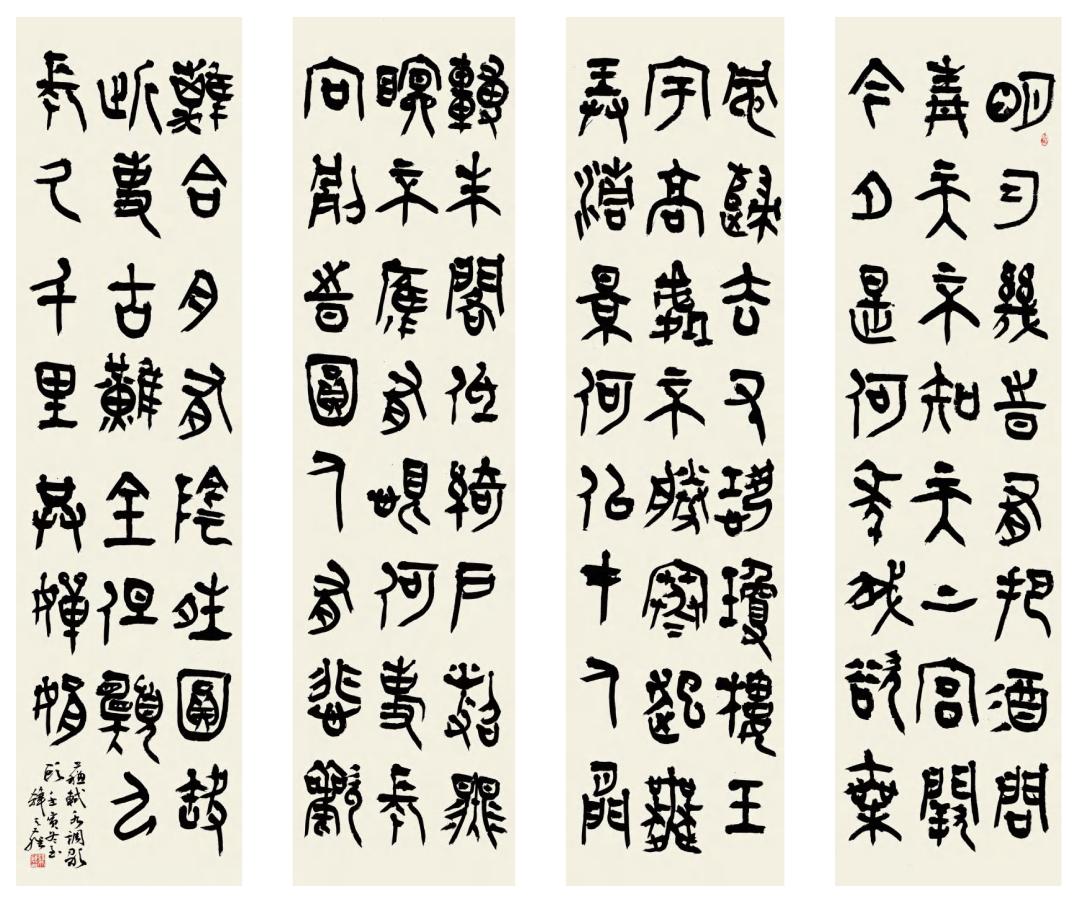 明月幾時有把酒問
青天不知天上宮闕
今夕是何年我欲乘
風歸去又恐瓊樓玉
宇高處不勝寒起舞
弄清影何似在人間
轉朱閣低綺戶照無
眠不應有恨何事長
向別時圓人有悲歡
離合月有陰晴圓缺
此事古難全但願人
長久千里共嬋娟
蘇軾水調歌
頭壬寅冬书